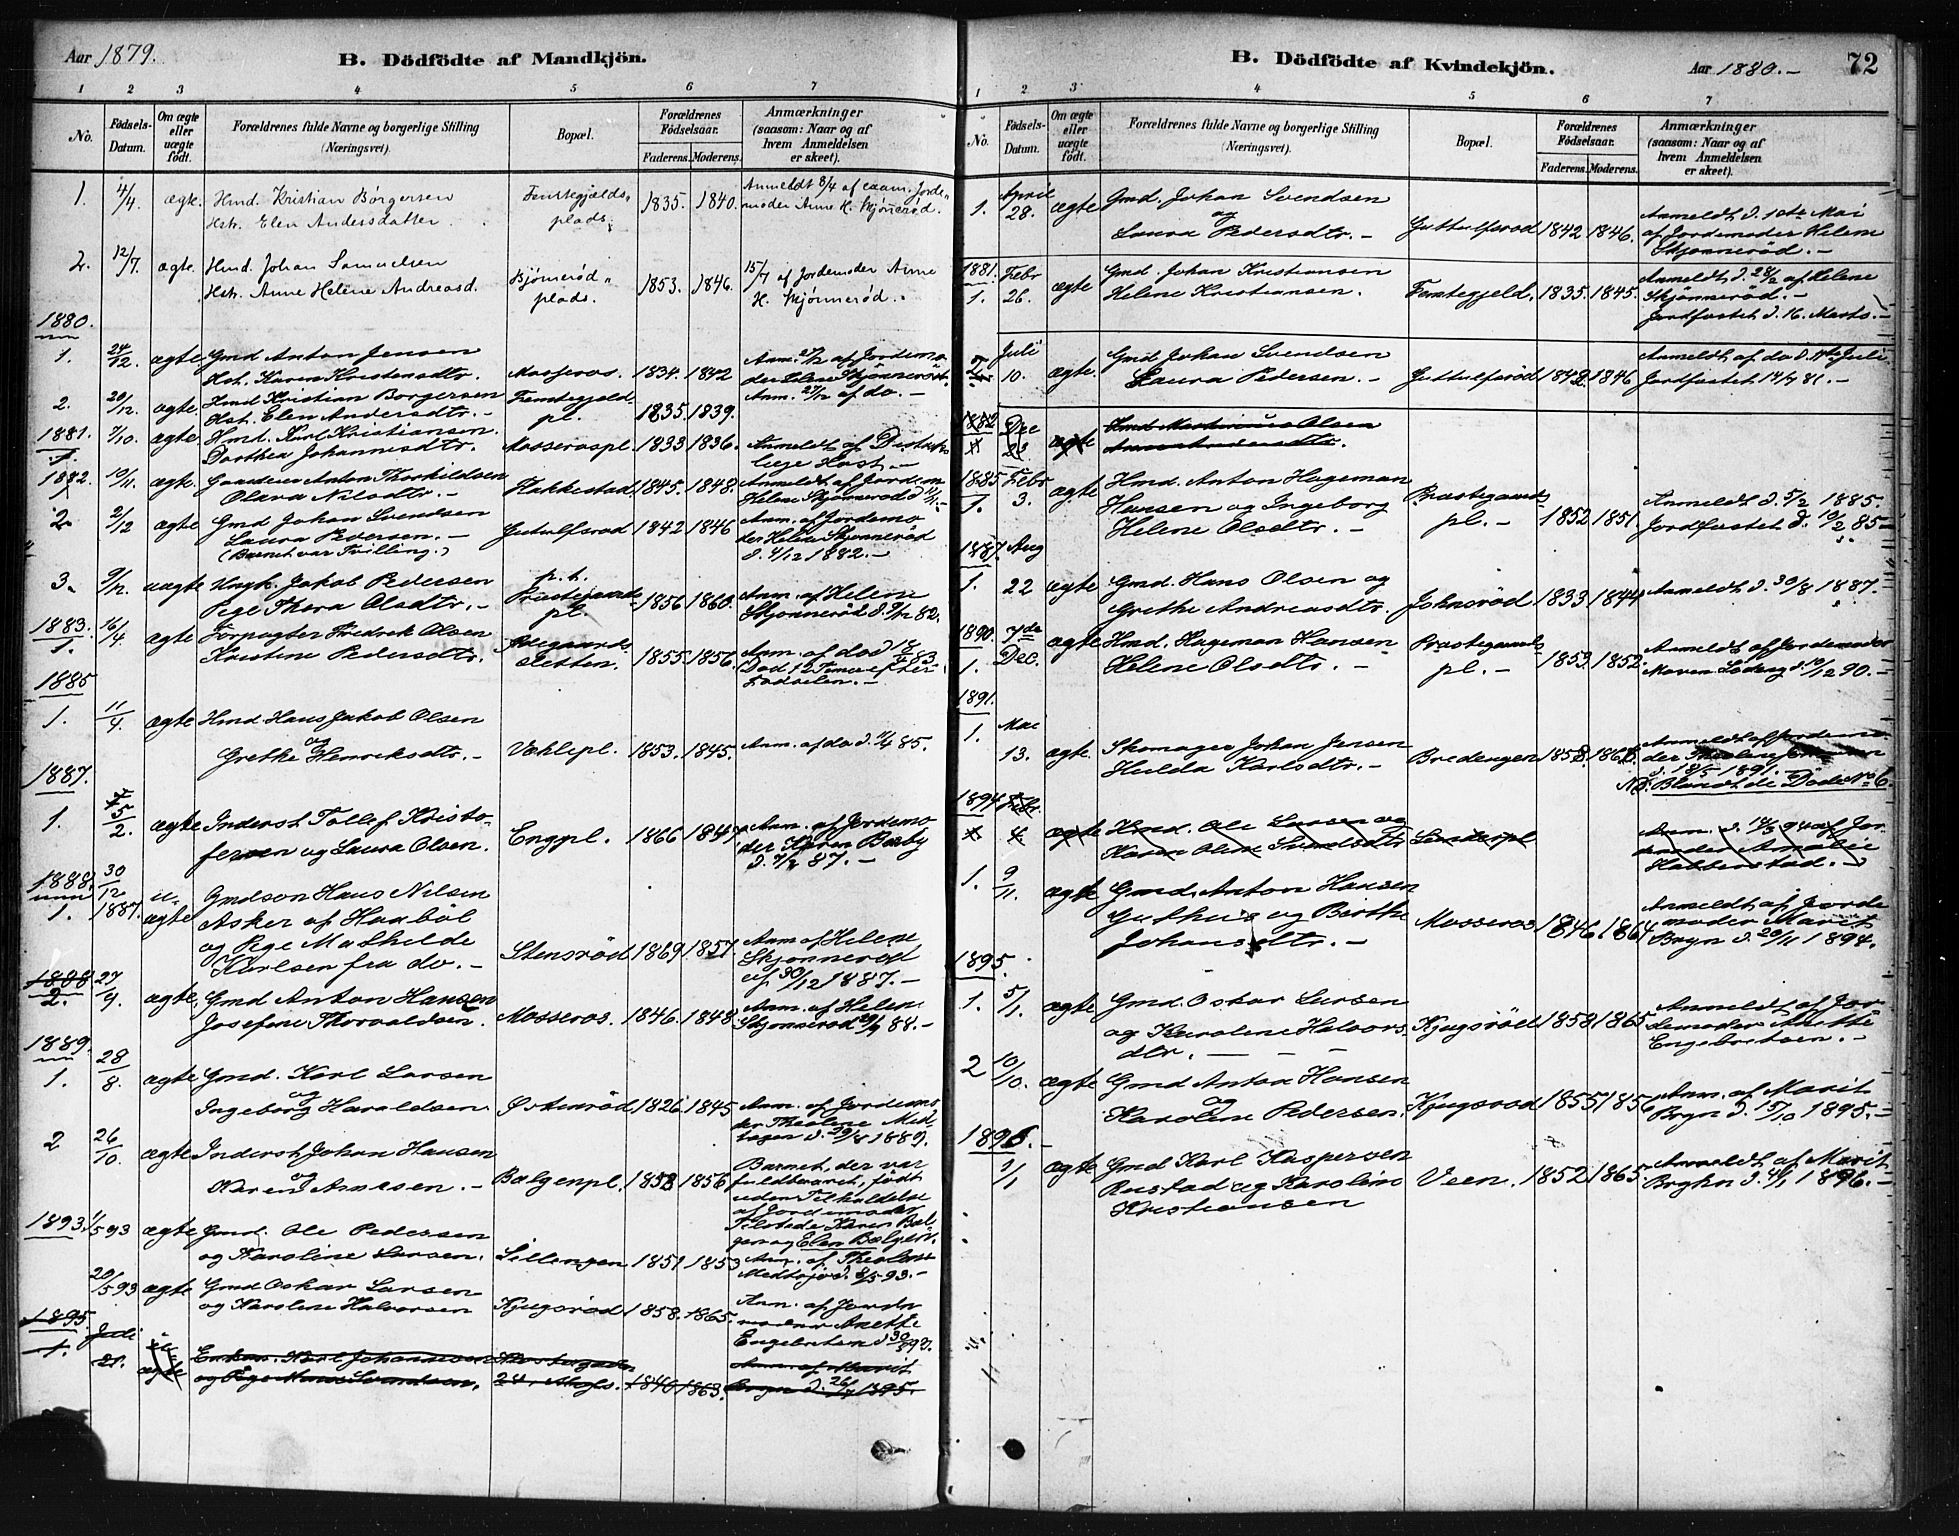 Aar 1879.
B. Dödfödte af Mandkjön.
1 2 3 4 5 6 7
No.
Födsels-Datum.
Om ægte eller uægte födt.
Forældrenes fulde Navne og borgerlige Stilling (Næringsvei).
Bopæl.
Forældrenes Födselsaar.
Faderens. Moderens.
Anmærkninger (saasom: Naar og af hvem Anmeldelsen er skeet).
1. 4/4. ægte. Hmd. Kristian Börgersen 1835. 1840. Anmeldt 8/4 af
Hstr. Elen Andersdatter plads. Anne H. Skjönnerød.
2. 12/7. ægte. Hmd. Johan Samuelsen Bjørnerød 1853. 1846. 15/7 af Jordemoder Anne
Hstr. Anne Helene Andreasd. plads. H. Skjønnerød.
1880.
1. 24/12. ægte Gmd Anton Jensen Mosseros. 1834. 1842 Anm. 27/12 af Jordemo
Hst. Karen Kristensdtr. der Helene Skjønnerød.
2. 20/12. ægte Hmd Kristian Borgersen Femtegjeld 1835. 1839. Anm. 27/12 af do. —
Hst. Elen Andersdtr. — pl.
1881.
1. 7/10. ægte Hmd. Karl Kristiansen Mosserospl. 1833 1836. Anmeldt af
Dorthea Johannesdtr. læge Høst. —
1882. 10/11. ægte. Gaardeier Anton Thorkildsen Hakkestad 1845. 1848. Anmeldt af Jordem
Olava Nilsdtr. — Helene Skjønnerød
2. 2/12 ægte Gmd Johan Svendsen Gutulfsrod 1842 1846 Anm. af Jordemo
Laura Pedersen. — der Helene Skjønnerød
(Barnet var Tvilling.) d. 4/12 1882. —
3. 9/12. uægte Ungk. Jakob Pedersen p.t. Præstegaards 1856 1860. Anm. af Helene
Pige Thora Olsdtr. — pl. Skjønnerød d. 9/12 82.
1883.
1. 16/4. ægte Forpagter Fredrek Olsen 1855. 1856. Anm. af do d. 18/4 83
Kristine Pedersdtr. sletten. Död 12 Timer efter
Födselen. —
1885
1. 11/4. ægte Hmd. Hans Jakob Olsen
og
Grethe Henriksdtr. — Væhlepl. 1853. 1845. Anm. af do d. 85.
1887.
1. 5/2. ægte Inderst Tollef Kristo-
fersen og Laura Olsen. Engpl. 1866 1847 Anm. af Jordemo
der Karen Bæby
d. 7/2 87. —
1888. 30/12 1887.
1. u-ægte Gmdson Hans Nilsen
Asker af Haabøl
og Pige Mathilde
Karlsen fra do. — Stensrød 1869 1857. Anm af Helene
Skjønnerød
af 30/12 1887. —
1888
2. 27/9. ægte Gmd Anton Hansen Mosseros. 1846. 1848 Anm. af Helene
Josefine Thorvaldsen. Skjønnerød 29/9 88. —
1889.
1. 28/8. ægte Gmd. Karl Larsen
og
Ingeborg Haraldsen. Østenrød 1826. 1845 Anm. af Jordemo
der Theoline Med
d. 29/8 1889.
2 26/10. ægte Inderst Johan Hansen
og
Karen Arnesen. — Bælgenpl. 1853 1856 Barnet, der var
fuldbaaret, födt
uden Tilkaldelse
af Jordemoder
Tilstede Karen Bæl
gen og Elen Bælgen.
1893. 1/5 93 ægte Gmd. Ole Pedersen
og Karoline Larsen. Sillengen 1851 1853 Anm. af Theoline
d. 8/5 93. —
20/5 93 ægte Gmd Oskar Larsen
og Karoline Halvorsen Kjugsrød 1858. 1865. Anm. af Jorde
moder Anette
Engebretsen d 30/5 93.
1895.
1. Juli 21. u-ægte Enkem. Karl Johannesen
og Pige Svendsen. 1840 1863. Anm. af Marit
Bryn d. 26/7 1895.
B. Dödfödte af Kvindekjön.
Aar 1880. —
72
1 2 3 4 5 6 7
No.
Födsels-Datum.
Om ægte eller uægte födt.
Forældrenes fulde Navne og borgerlige Stilling (Næringsvei).
Bopæl.
Forældrenes Födselsaar.
Faderens. Moderens.
Anmærkninger (saasom: Naar og af hvem Anmeldelsen er skeet).
1. April 28. ægte Gmd. Johan Svendsen
og
Laura Pedersdtr. — Guttulfsrod 1842 1846. Anmeldt d. 10te Mai
af Jordemoder Helene
Skjønnerød. —
1881.
1. Febr 26. ægte Gmd. Johan Kristiansen
Helene Kristiansen. Femtegjeld. 1835. 1845. Anmeldt d. 28/2 af Helene
Skjønnerød. —
Jordfæstet d. 16. Marts. —
2. Juli 10. ægte. Gmd Johan Svendsen
Laura Pedersen. — Guttulfsrød 1842. 1846 Anmeldt af do d. 11te Juli
Jordfæstet 14/7 81. —
1882
1 Dec 23. ægte Hmd Martinius Olsen
Andersdtr.
1885
1. Febr 3. ægte Hmd. Anton Hageman
Hansen og Ingeborg
Helene Olsdtr. — Præstegaards pl. — 1852 1851. Anmeldt d. 5/2 1885.
Jordfæstet d. 10/2 85 —
1887.
1. Aug 22 ægte Gmd. Hans Olsen og
Grethe Andreasdtr. Johnsrød 1833 1844 Anmeldt d. 30/8 1887.
1890.
1. 7de Dec. ægte Hmd. Hageman Hansen
Helene Olsdtr. — Præstegaards pl. — 1853. 1852. Anmeldt af Jordemoder
Maren Loberg d. 10/12 90. —
1891.
1. Mai 13. ægte. Skomager Johan Jensen
Hulda Karlsdtr. — Bredengen 1858. Anmeldt af Jordemo
der Theoline
d. 18/5 1891. —
NB. Blandt de Døde No 6.
1894 Febr.
1 4 ægte Hmd. Ole Larsen og
Karen Oline Svendsdtr. Anm. d. 94 af Jor
demoder Amalie
Habberstad. —
1. 9/11. ægte Gmd. Anton Hansen
Guthus og Birthe
Johansdtr. — Mosseros 1846. 1864 Anmeldt af Jorde
moder Marit
Bryn d. 20/11 1894.
1895.
1. 5/1. ægte Gmd. Oskar Larsen
og Karoline Halvors
dtr. — — — Kjugsrød 1858 1865 Anmeldt af Jor
demoder Anette
Engebretsen. —
2 10/10. ægte Gmd Anton Hansen
og
Karoline Pedersen. Kjugsrød 1855 1856 Anm. af Marit
Bryn d. 15/10 1895. —
1896. —
1/1 ægte Gmd Karl Kaspersen
Rustad og Karoline
Kristiansen Veen. 1852 1865. Anmeldt af Marit
Brghn d. 4/1 1896. —